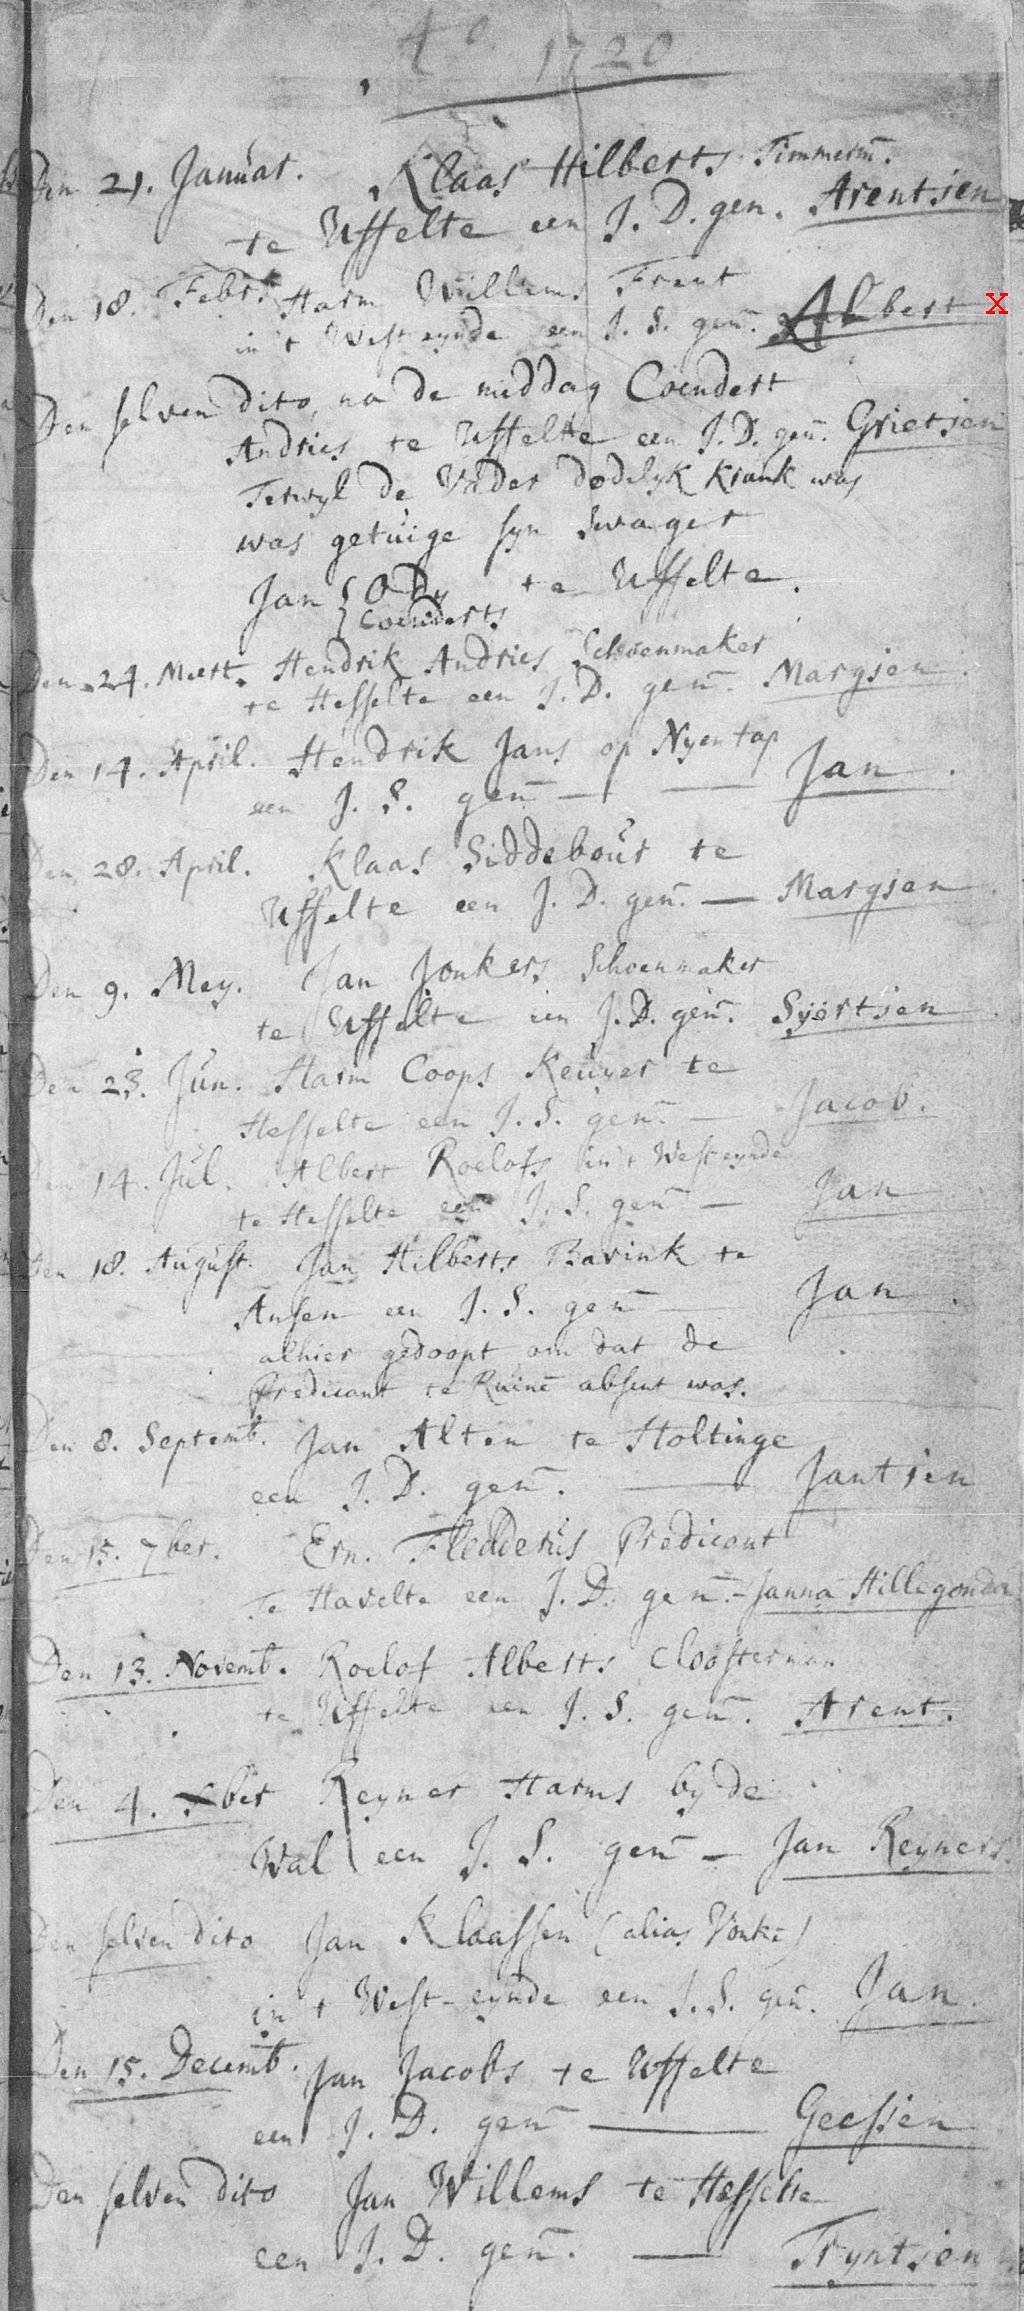 Ao. 1720
Den 21. Januar. Klaas Hilberts Timmerm̄.
te Uffelte een J. D. gen. Arentjen
Den 18. Febr. Harm Willems Frent
in 't Westeynde een J. S. gen̄. Albert X
Den selven dito, na de middag Coendert
Andries te Uffelte een J. D. gen̄. Grietjen
Terwyl de Vader dodelyk krank was
was getuige syn Swager
Jan { Ody te Uffelte.
Coenderts
Den 24. Meert. Hendrik Andries Schoenmaker
te Hesselte een J. D. gen̄. Margjen
Den 14. April. Hendrik Jans op Nyentap
een J. S. gen̄ — — Jan.
Den 28. April. Klaas Siddebour te
Uffelte een J. D. gen̄. — Margjen
Den 9. Mey. Jan Jonkers Schoenmaker
te Uffelte een J. D. gen̄. Syërtjen
Den 23. Jun. Harm Coops Keuyer te
Hesselte een J. S. gen̄ — Jacob.
Den 14. Jul. Albert Roelofs in 't Westeynde
te Hesselte een J. S. gen̄ — Jan
Den 18. August. Jan Hilberts Bavink te
Ansen een J. S. gen̄ — Jan.
alhier gedoopt om dat de
Predicant te Ruinē absent was.
Den 8. Septemb. Jan Alten te Holtinge
een J. D. gen̄. — Jantien
Den 15. 7ber. Ern. Fledderus Predicant
Te Havelte een J. D. gen̄ - Janna Hillegonda
Den 13. Novemb. Roelof Alberts Cloosterman
te Uffelte een J. S. gen̄. Arent.
Den 4. Xber Reyner Harms by de
Wal een J. S. gen̄ — Jan Reyners.
Den selven dito Jan Klaassen (alias Vonkē)
in t West-eynde een J. S. gen̄. Jan.
Den 15. Decemb. Jan Jacobs te Uffelte
een J. D. gen̄ — Geesjen
Den selven dito Jan Willems te Hesselte
een J. D. gen̄. — Tryntjen